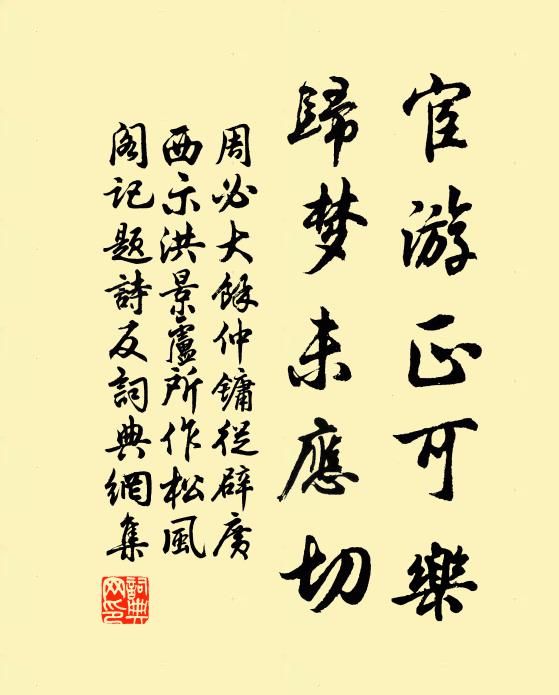 宦游正可樂
歸梦未應切
周必大餘仲鏞從辟廣
西示洪景盧所作松風
閣记题詩反詞典網集
詞典